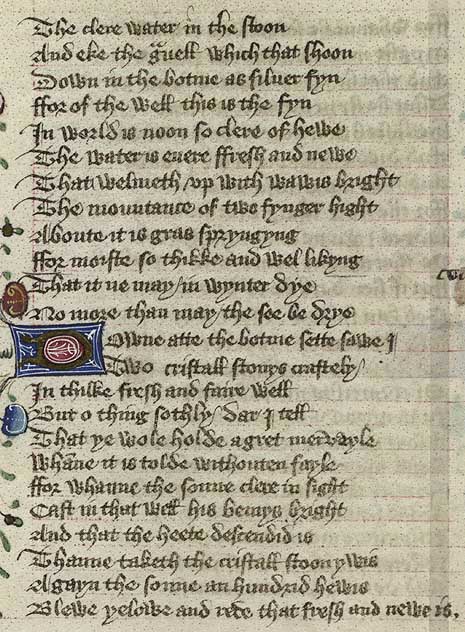 The clere water in the stoon
And eke the g̃uell which that shoon
Down in the botme as siluer fyn
ffor of the well this is the fyn
In world is noon so clere of hewe
The water is euere ffresh and newe
That welmeth / vp with wawis bright
The mountance of two fynger hight
Aboute it is gras spryngyng
ffor moiste so thikke and wel likyng
That it ne may / in wynter dye
No more than may / the see be drye
Downe atte the botme sette sawe I
Two cristall stonys craftely /
In thilke fresh and faire well
But o thing sothly / dar I tell
That ye wole holde a gret mervayle
Whāne it is tolde withouten fayle
ffor whanne the sonne clere in sight
Cast in that well his bemys bright
And that the heete descendid is
Thanne taketh the cristall stoon ywis
Agayn the sonne an hundrid hewis
Blewe yelowe and rede that fresh and newe is.